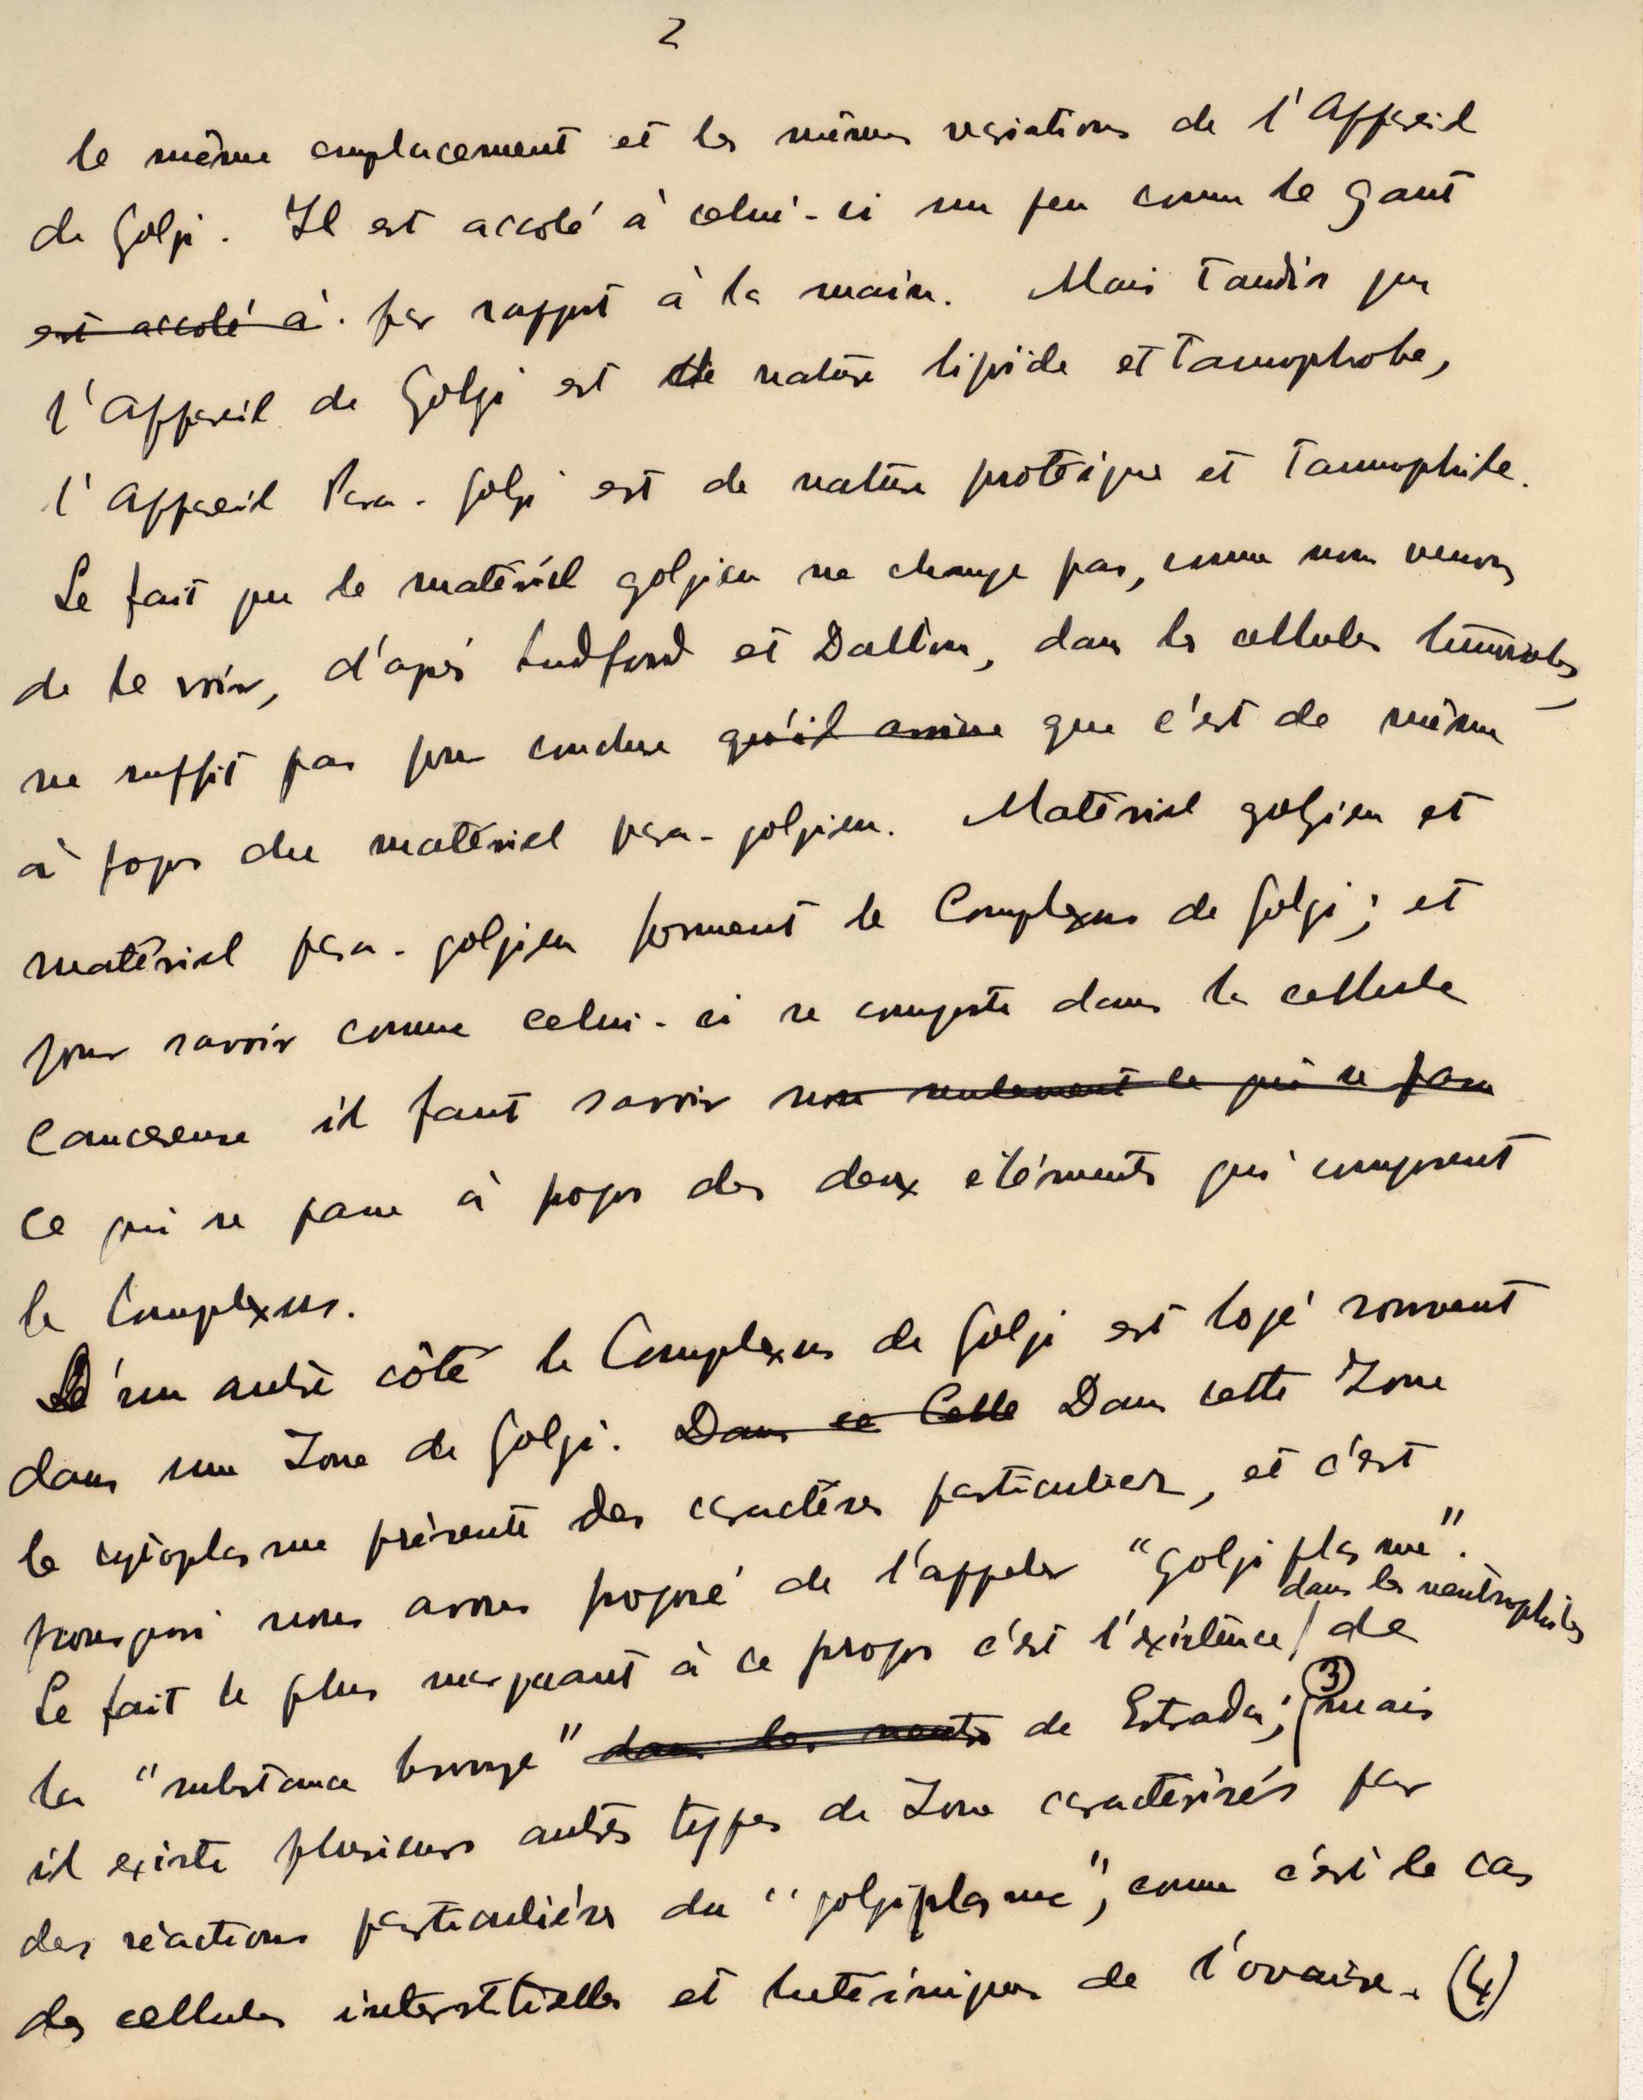 2
le même emplacement et les mêmes variations de l'Appareil
de Golgi. Il est accolé à celui-ci un peu comme le gant
est accolé à. par rapport à la main. Mais tandis que
l'Appareil de Golgi est de nature lipoïde et tannophobe,
l'Appareil Para-Golgi est de nature protéique et tannophile.
Le fait que le matériel golgien ne change pas, comme nous venons
de le voir, d'après Ludford et Dalton, dans les cellules tumorales,
ne suffit pas pour conclure qu'il arrive que c'est de même
à propos du matériel para-golgien. Matériel golgien et
matériel para-golgien forment le Complexus de Golgi; et
pour savoir comme celui-ci se comporte dans la cellule
cancereuse il faut savoir non seulement ce qui se passe
ce qui se passe à propos des deux éléments qui composent
le Complexus.
D'un autre côté le Complexus de Golgi est logé souvent
dans une Zone de Golgi. Dans ce Celle Dans cette Zone
le cytoplasme présente des caractères particuliers, et c'est
pourquoi nous avons proposé de l'appeler "golgiplasme".
Le fait le plus marquant à ce propos c'est l'existence / dans les neutrophiles de
la "substance bronze" dans les neutro de Estrada; (3) mais
il existe plusieurs autres types de Zone caractérisés par
des réactions particulières du "golgiplasme", comme c'est le cas
des cellules interstitielles et lutéiniques de l'ovaire. (4)